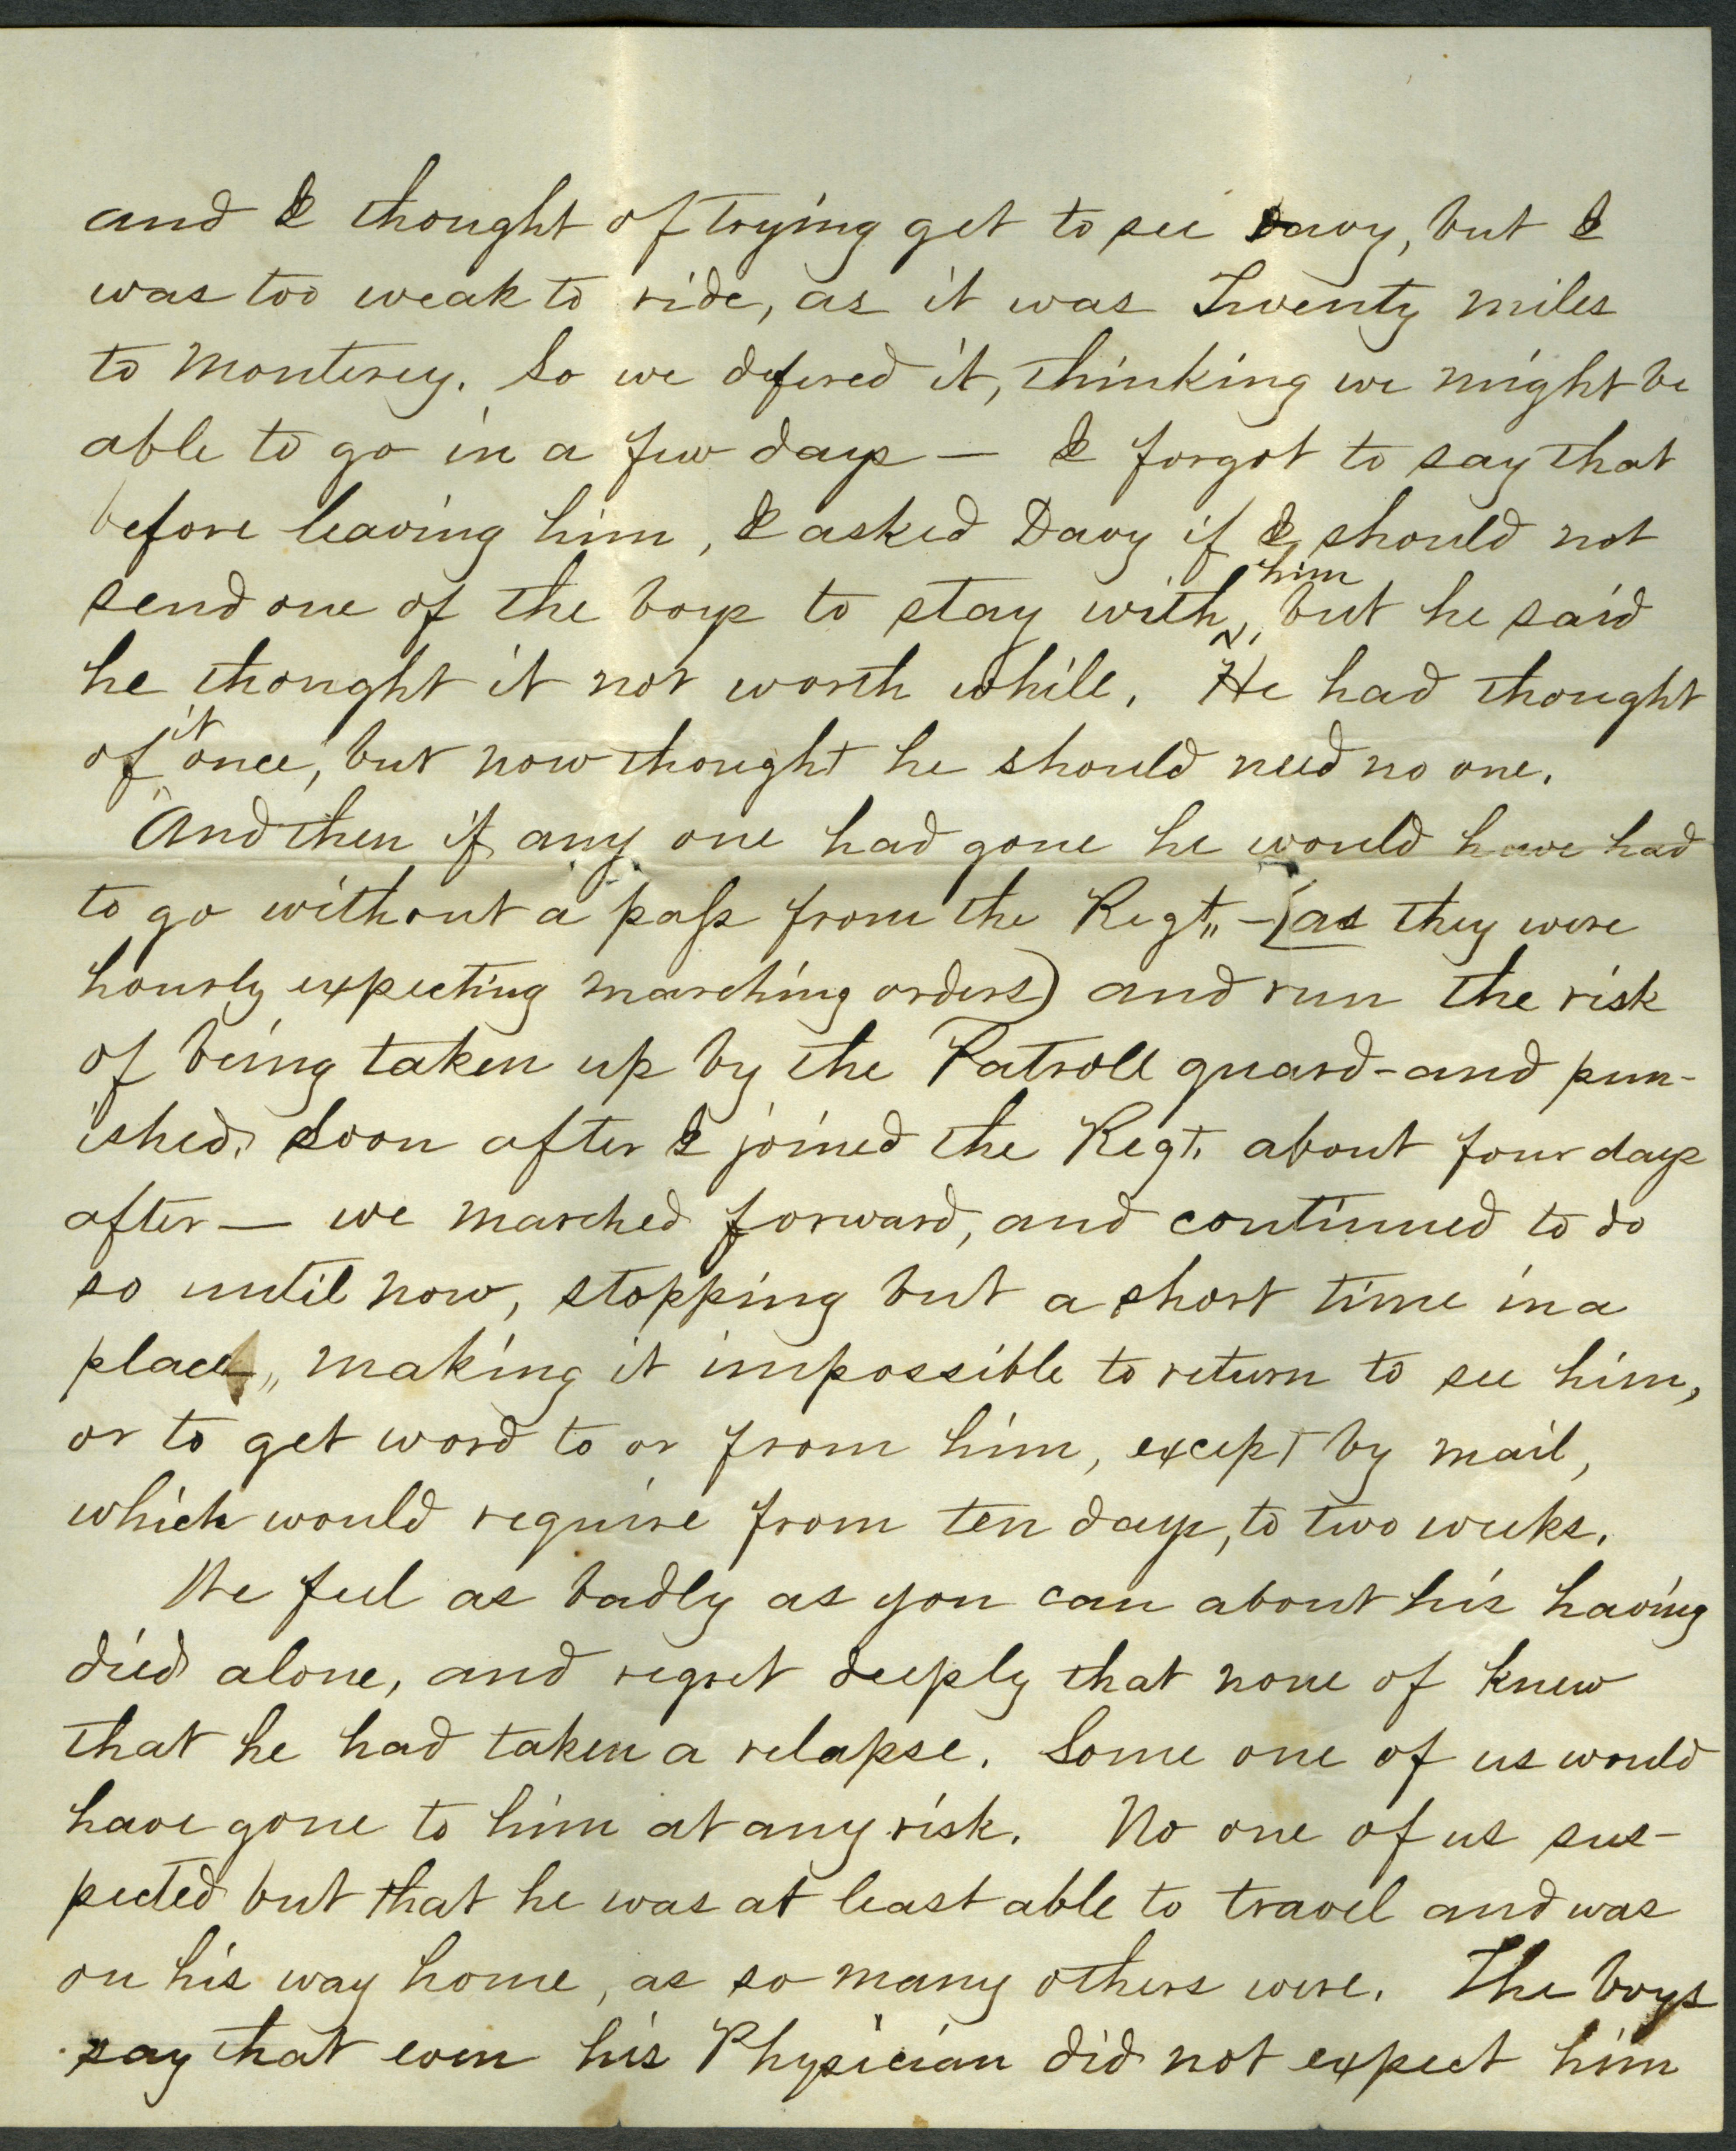 and I thought of trying get to see Davy, but I
was too weak to ride, as it was Twenty miles
to Monterey. So we defered it, thinking we might be
able to go in a few days — I forgot to say that
before leaving him, I asked Davy if I should not
send one of the boys to stay with him, but he said
he thought it not worth while. He had thought
of it once, but now thought he should need no one.
And then if any one had gone he would have had
to go without a pass from the Regt„ – (as they were
hourly expecting marching orders) and run the risk
of being taken up by the Patroll guard – and pun-
ished. Soon after I joined the Regt. about four days
after — we marched forward, and continued to do
so until now, stopping but a short time in a
place„ making it impossible to return to see him,
or to get word to or from him, except by mail,
which would require from ten days, to two weeks.
We feel as badly as you can about his having
died alone, and regret deeply that none of knew
that he had taken a relapse. Some one of us would
have gone to him at any risk. No one of us sus-
pected but that he was at least able to travel and was
on his way home, as so many others were. The boys
say that even his Physician did not expect him